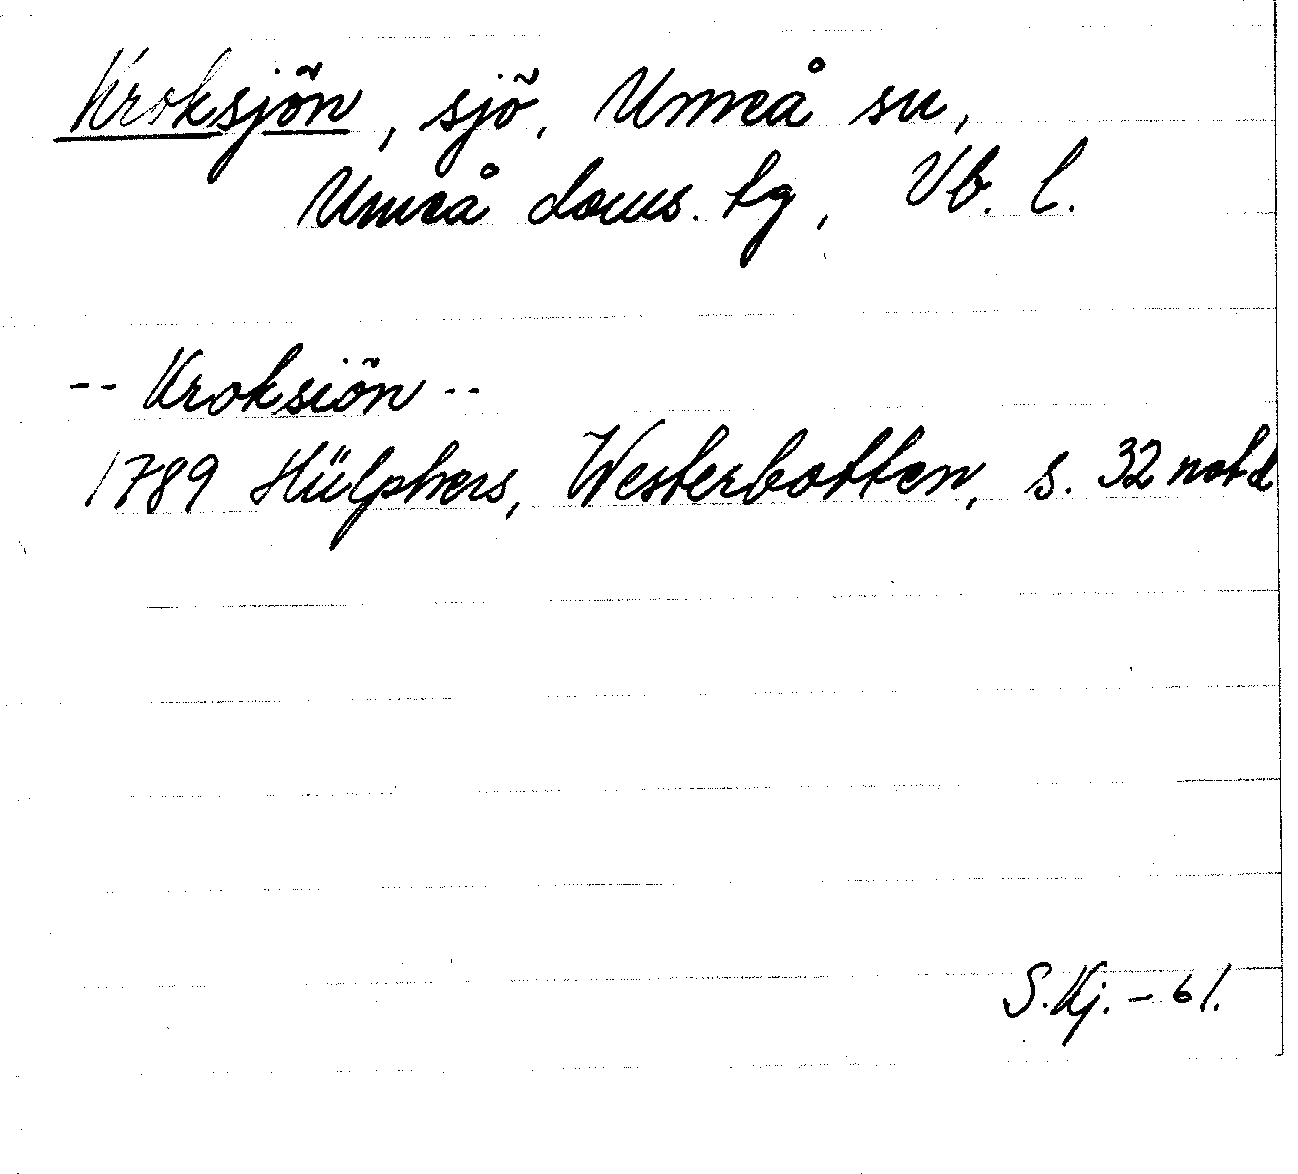 Kroksjön, sjö, Umeå sn,
Umeå doms. tg, Vb. l.
-- Kroksiön --
1789 Hülphers, Westerbotten, s. 32 not d
S.Kj. - 61.